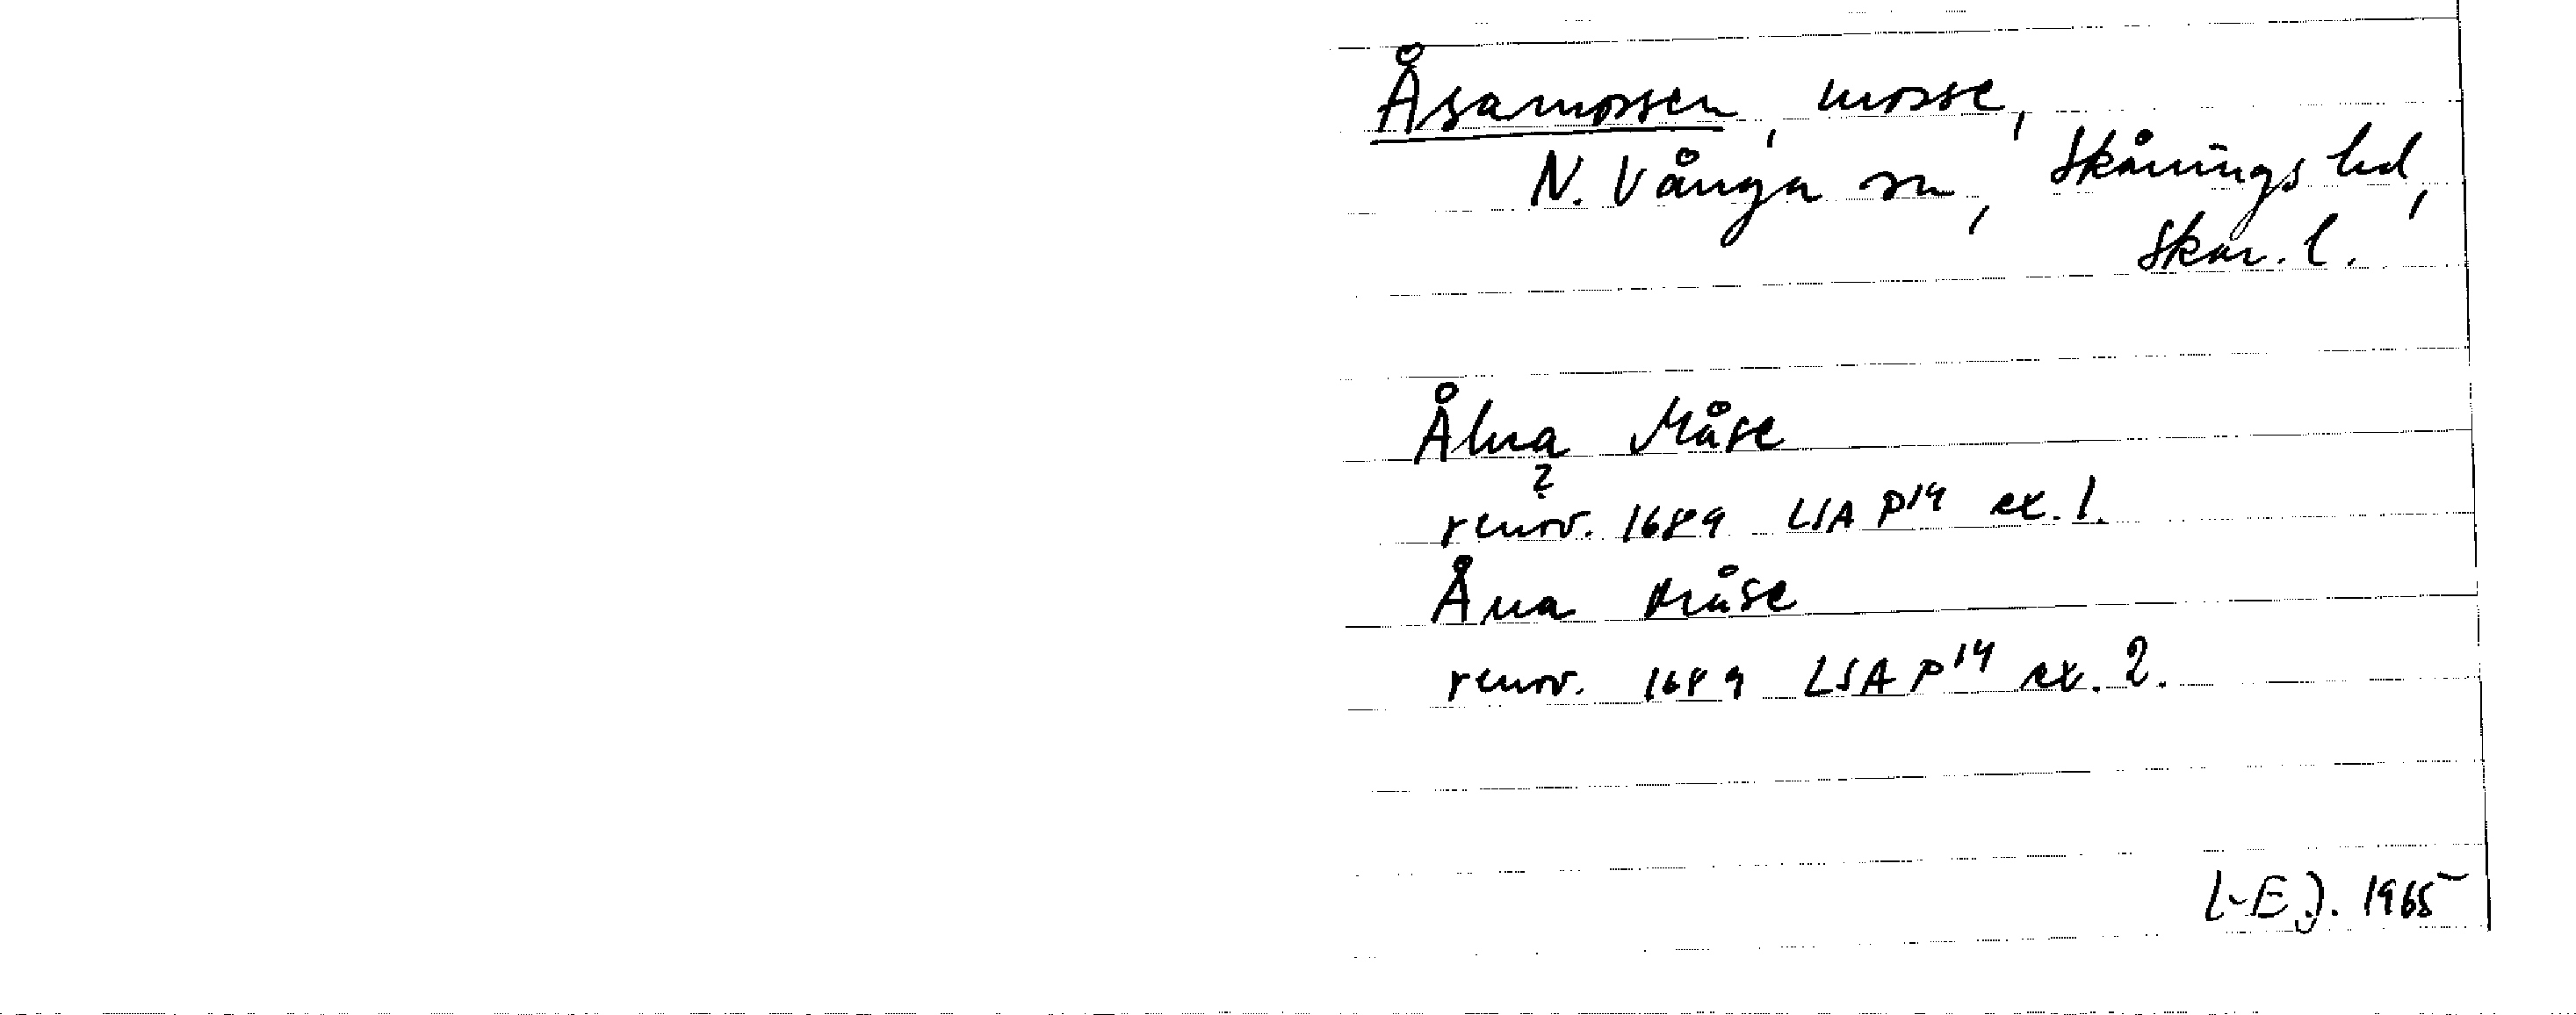 Åsamossen, mosse,
N. Vånga sn, Skånings hd,
Skar. l.
Ålna Måse
?
renov. 1689 LSA P14 ex. 1.
Åna Måse
renov. 1689 LSA P14 ex. 2.
L-E J. 1965